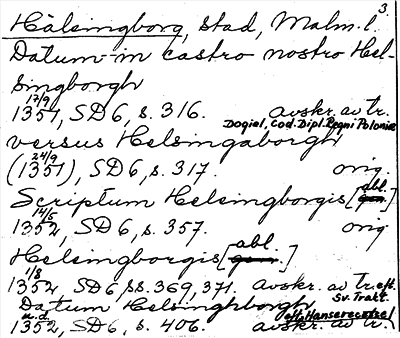 3.
Hälsingborg, stad, Malm. l.
Datum in castro nostro Hel-
singborgh
17/9
1351, SD6, s. 316. avskr. av tr.
Dogiel, Cod. Dipl. Regni Poloniæ
versus Helsingaborgh
24/9
(1351), SD6, s. 317. orig.
Scriptum Helsingborgis [abl.]
14/5
1352, SD6, s. 357. orig
Helsingborgis [abl.]
1/8
1352, SD6, ss. 369, 371. avskr. av tr. eft.
Sv. Trakt.
Datum Helsinghborgh
u.d. eft. Hanserecesse
1352, SD6, s. 406. avskr. av tr.